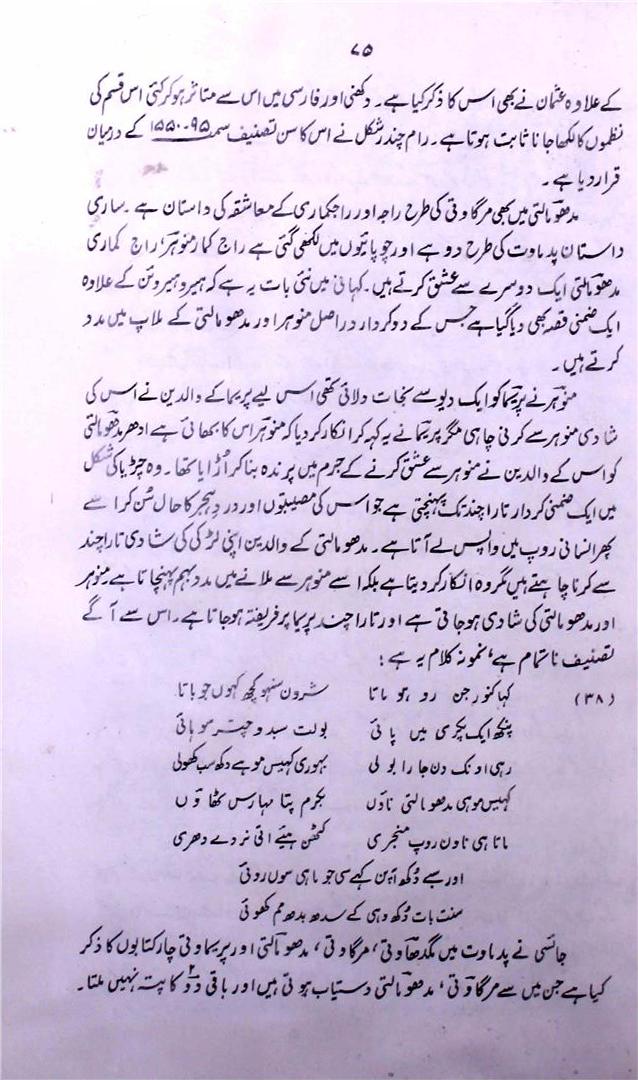 ۷۵
کے علاوہ عثمان نے بھی اس کا ذکر کیا ہے۔ دکھنی اور فارسی میں اس سے متاثر ہو کر کئی اس قسم کی
نظموں کا لکھا جانا ثابت ہوتا ہے۔ رام چندر شکل نے اس کا سن تصنیف سمت ۹۵-۱۵۵۰ کے درمیان
قرار دیا ہے۔
مدھو مالتی میں بھی مرگاوتی کی طرح راجہ اور راجکماری کے معاشقہ کی داستان ہے۔ ساری
داستان پدماوت کی طرح دوہے اور چوپائیوں میں لکھی گئی ہے راج کمار منوہر، راج کماری
مدھو مالتی ایک دوسرے سے عشق کرتے ہیں۔ کہانی میں نئی بات یہ ہے کہ ہیرو ہیروئن کے علاوہ
ایک ضمنی قصہ بھی دیا گیا ہے جس کے دو کردار دراصل منوہر اور مدھو مالتی کے ملاپ میں مدد
کرتے ہیں۔
منوہر نے پریما کو ایک دیو سے نجات دلائی تھی اس لیے پریما کے والدین نے اس کی
شادی منوہر سے کرنی چاہی مگر پریما نے یہ کہہ کر انکار کر دیا کہ منوہر اس کا بھائی ہے ادھر مدھو مالتی
کو اس کے والدین نے منوہر سے عشق کرنے کے جرم میں پرندہ بنا کر اڑا یا تھا۔ وہ چڑیا کی شکل
میں ایک ضمنی کردار تارا چند تک پہنچتی ہے جو اس کی مصیبتوں اور درد ہجر کا حال سُن کر اسے
پھر انسانی روپ میں واپس لے آتا ہے۔ مدھو مالتی کے والدین اپنی لڑکی کی شادی تارا چند
سے کرنا چاہتے ہیں مگر وہ انکار کر دیتا ہے بلکہ اسے منوہر سے ملانے میں مدد بہم پہنچاتا ہے۔ منوہر
اور مدھو مالتی کی شادی ہو جاتی ہے اور تارا چند پریما پر فریفتہ ہو جاتا ہے۔ اس سے آگے
تصنیف ناتمام ہے، نمونہ کلام یہ ہے:
(۳۸) کہا کنور جن رو ہو ماتا شرون سنہو کچھ کہوں جو باتا
پنکھ ایک پکری میں پائی بولت سبد و چتر موہائی
رہی او نک دن جارا بولی بہوری کہیس موہے دکھ سب کھولی
کہیس موہی مدھو مالتی ناؤں بکرم پتا مہارس ٹھاؤں
ماتا ہی ناون روپ منجری کٹھن ہیئے اتی نردے دھری
اور سبے دُکھ اپن کہے سی جو ماہی سوں روئی
سنت بات دُکھ وہی کے سدھ بدھ مم کھوئی
جائسی نے پدماوت میں مگدھاوتی، مرگاوتی، مدھو مالتی اور پریماوتی چار کتابوں کا ذکر
کیا ہے جن میں سے مرگاوتی، مدھو مالتی دستیاب ہوتی ہیں اور باقی دو۲ کا پتہ نہیں ملتا۔